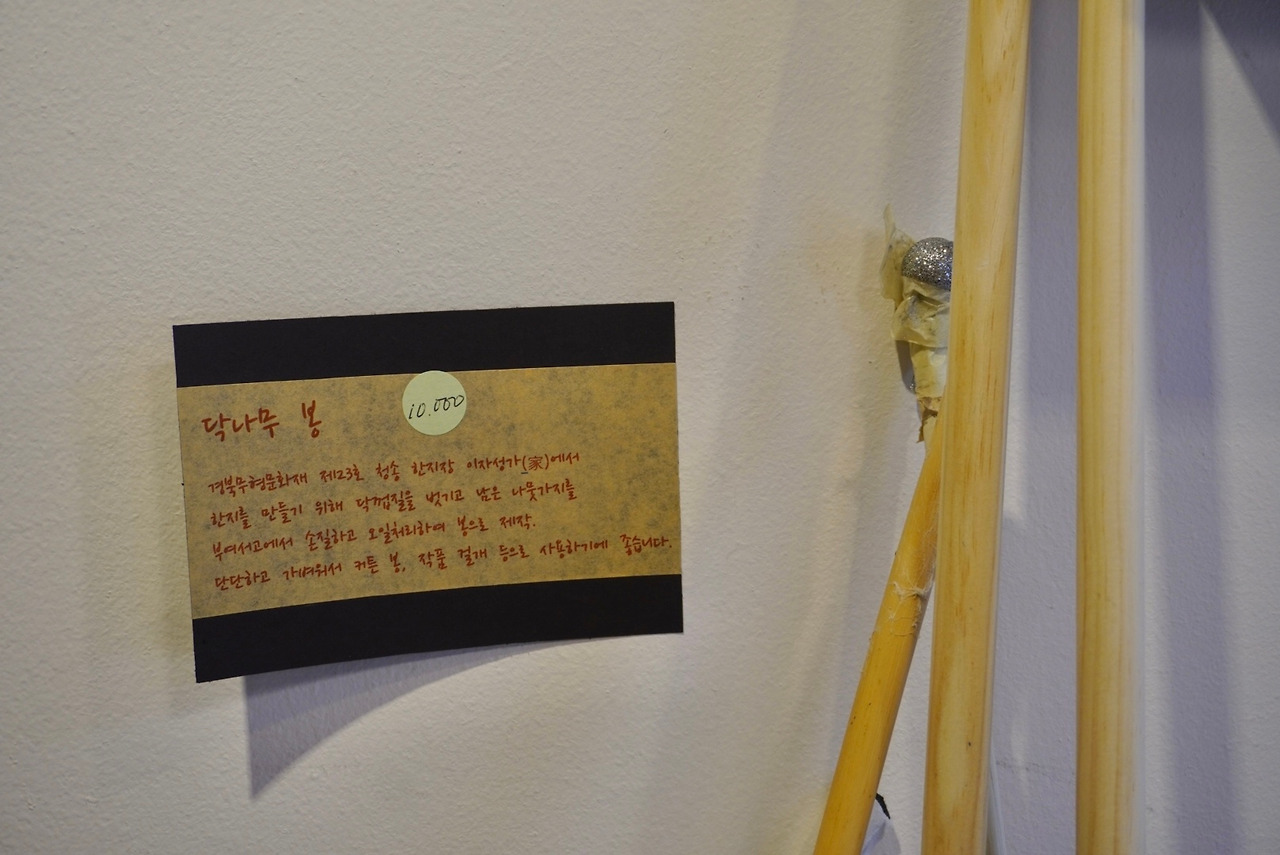 닥나무 봉
10.000
경북무형문화재 제23호 청송 한지장 이자성가(家)에서
한지를 만들기 위해 닥껍질을 벗기고 남은 나뭇가지를
부여서고에서 손질하고 오일처리하여 봉으로 제작.
단단하고 가벼워서 커튼 봉, 작품 걸개 등으로 사용하기에 좋습니다.